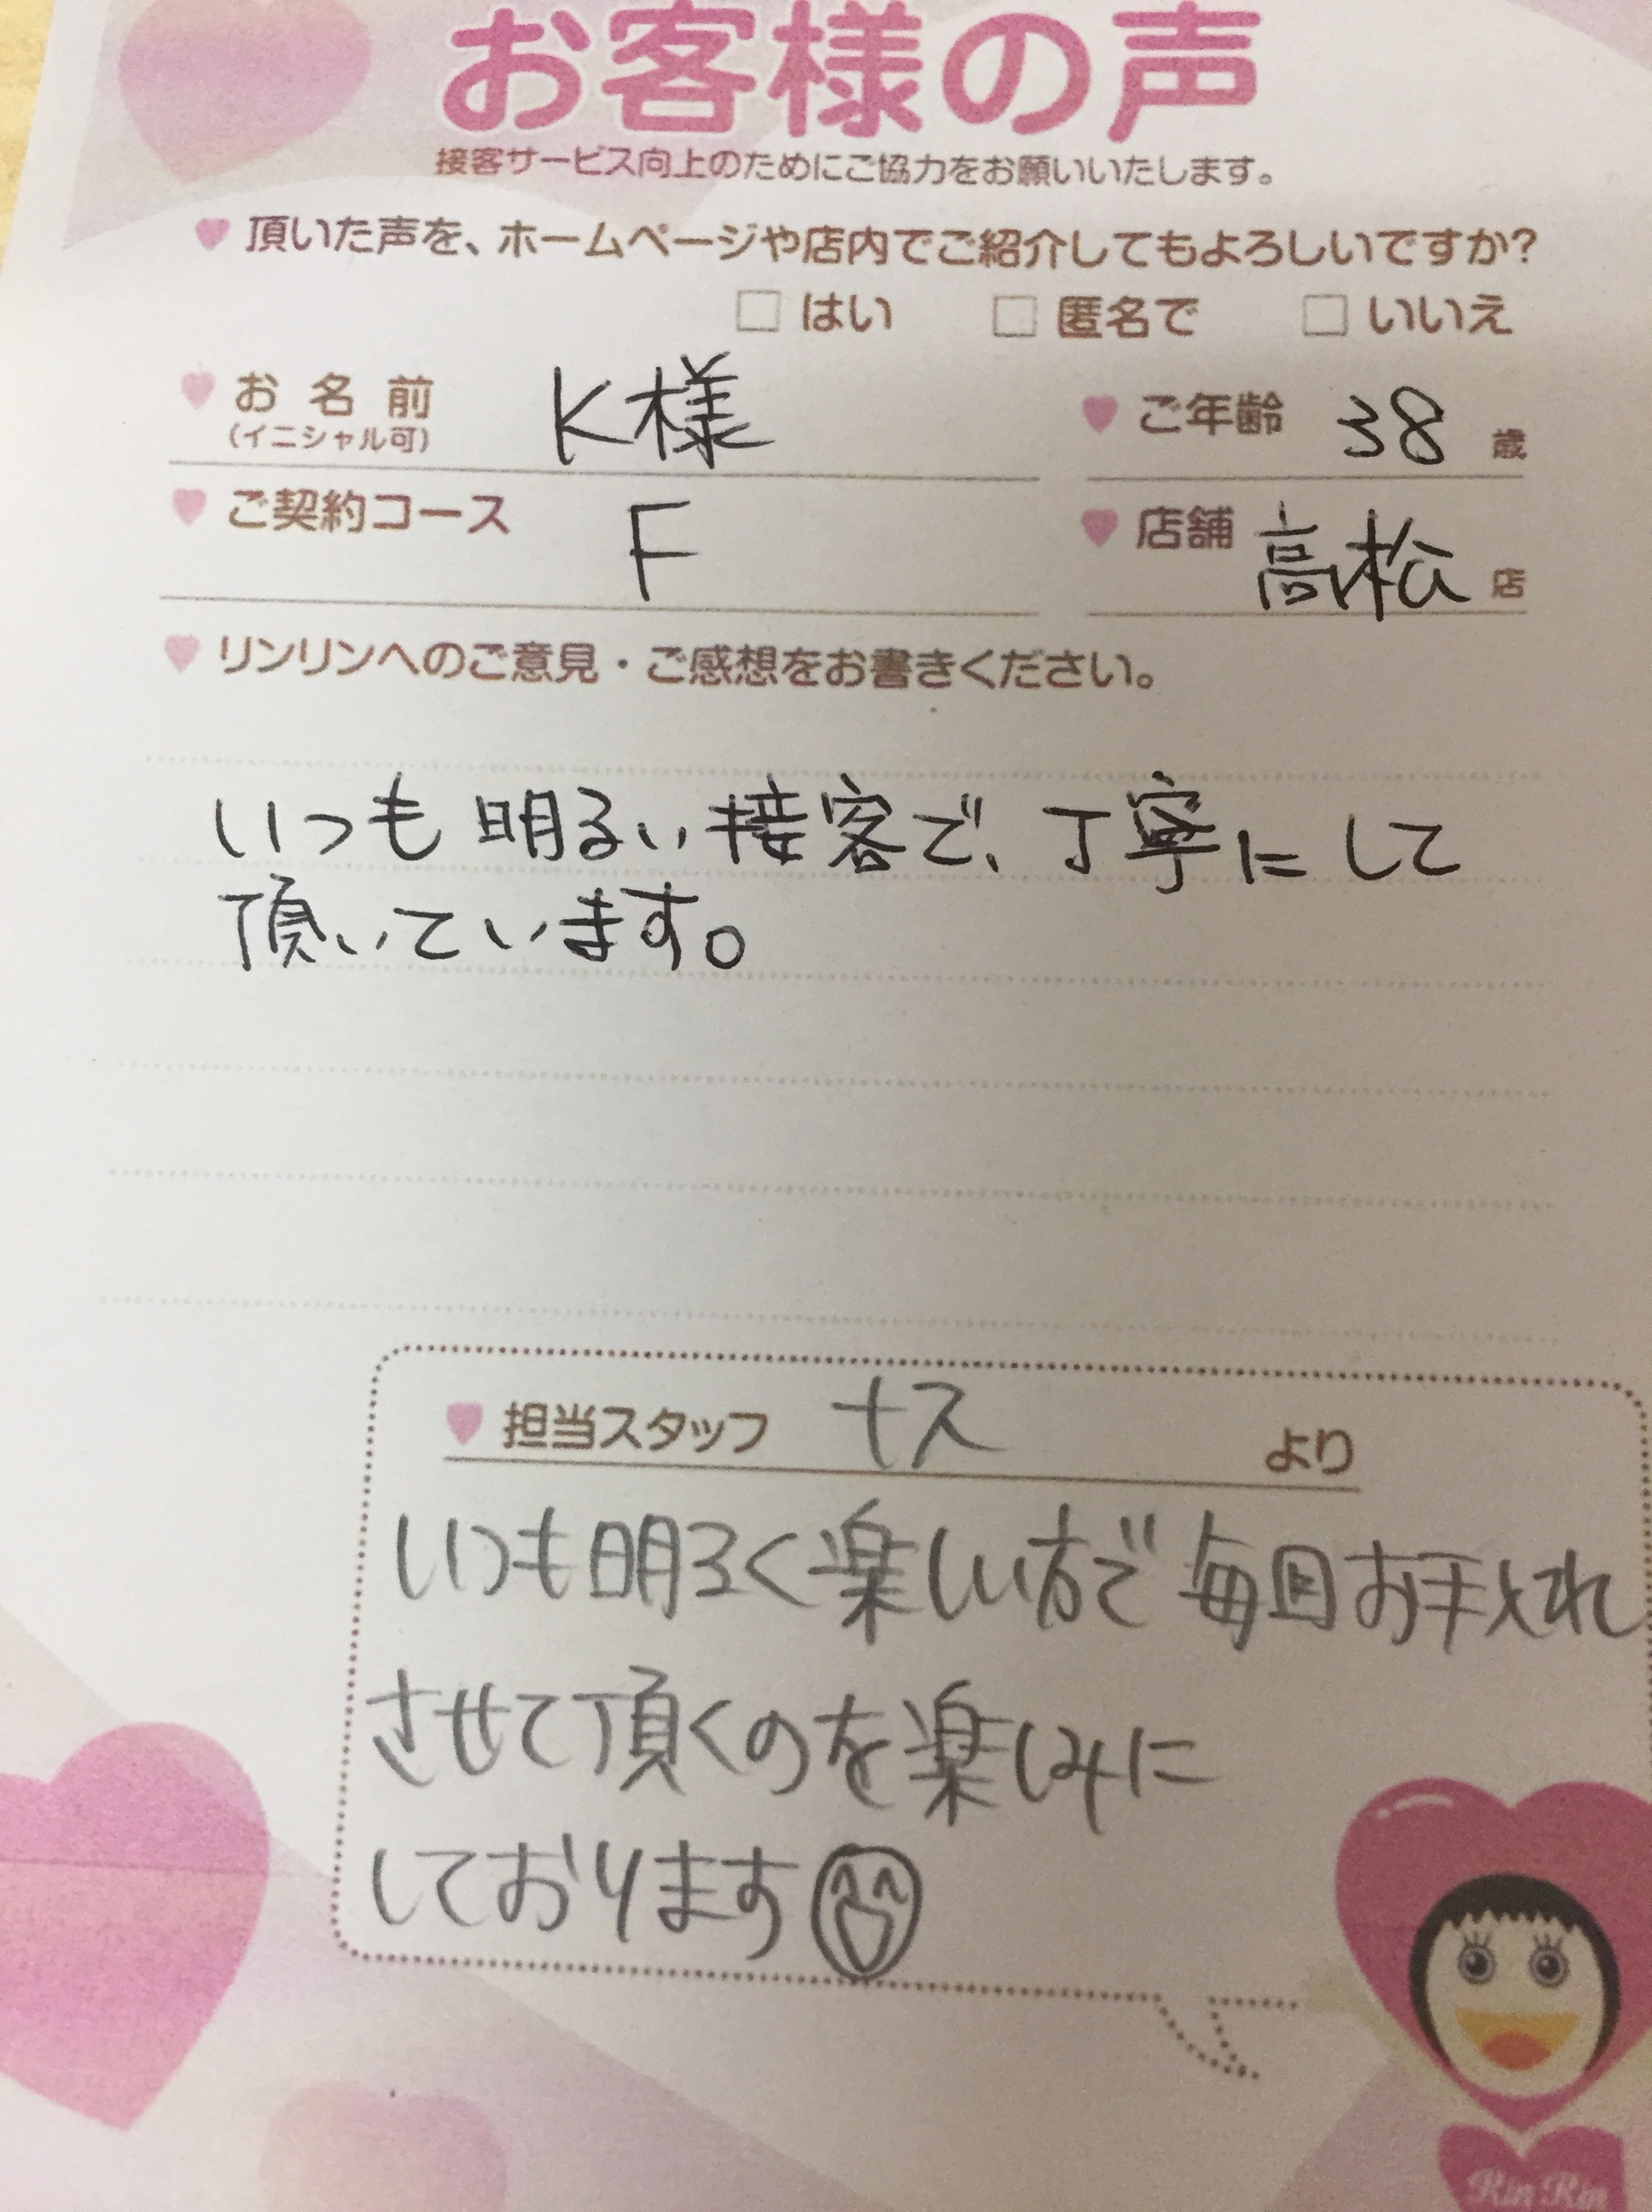 お客様の声
接客サービス向上のためにご協力をお願いいたします。
頂いた声を、ホームページや店内でご紹介してもよろしいですか?
□ はい □ 匿名で □ いいえ
お名前 K様 ご年齢 38 歳
(イニシャル可)
ご契約コース F 店舗 高松 店
リンリンへのご意見・ご感想をお書きください。
いつも明るい接客で、丁寧にして
頂いています。
担当スタッフ ナス より
いつも明るく楽しい方で毎回お手入れ
させて頂くのを楽しみに
しております
Rin Rin